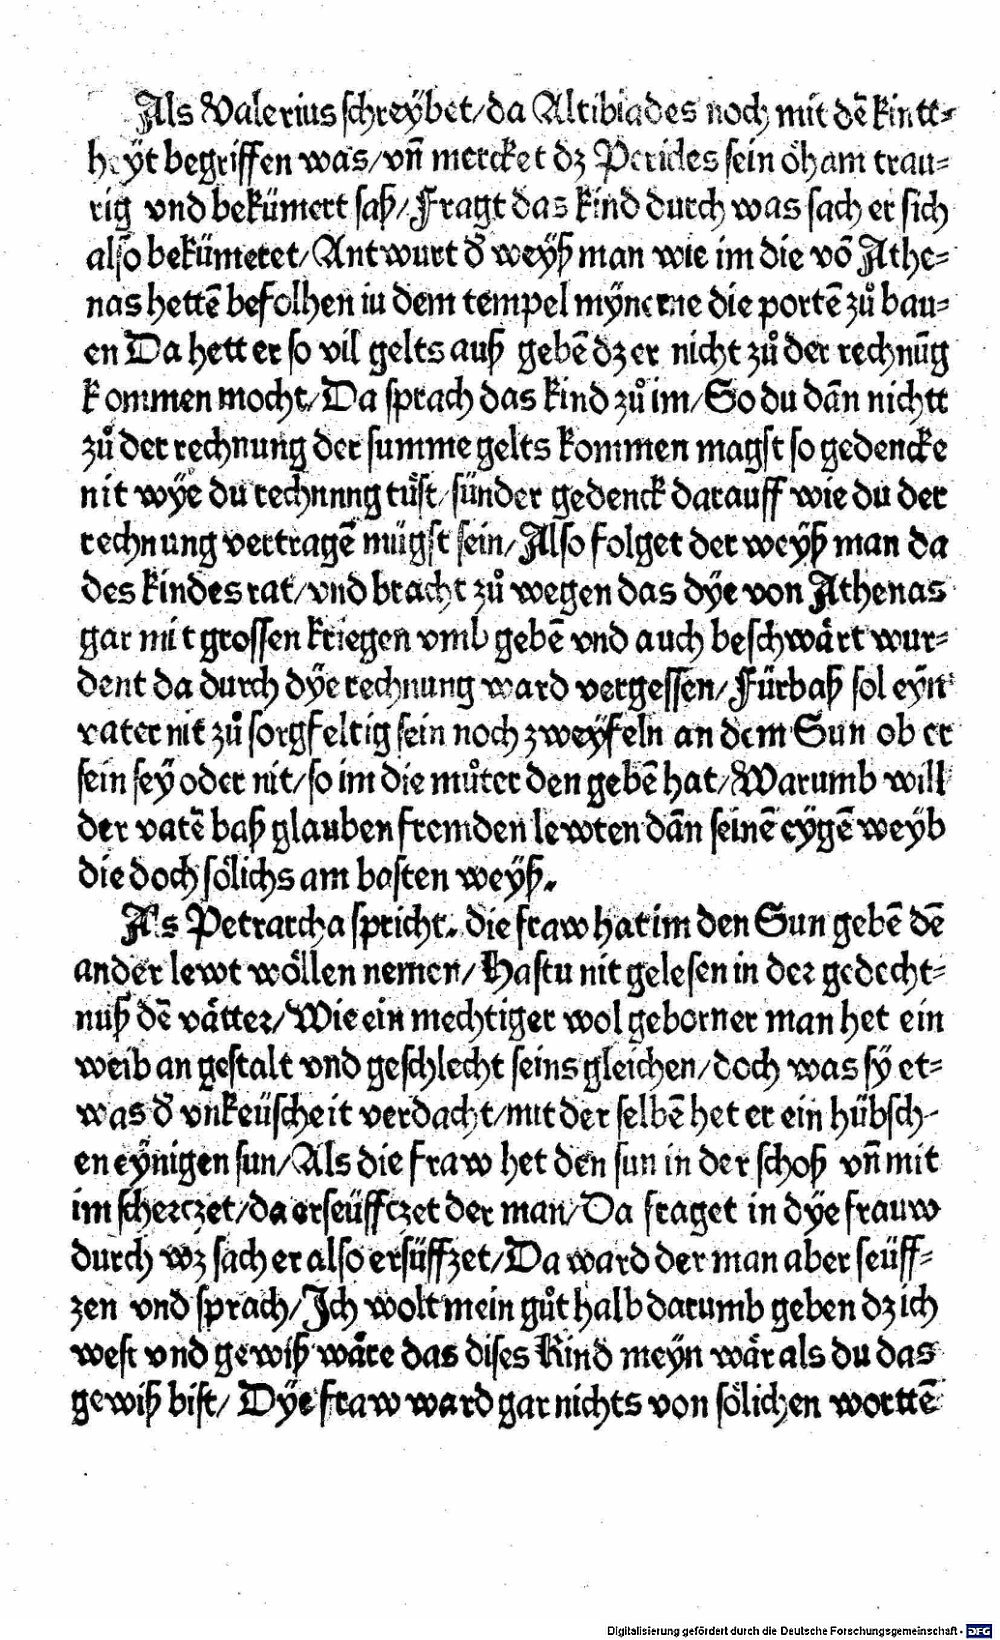 Als Valerius schreybet/da Altibiades noch mit dē kintt⸗
heyt begriffen was/vñ mercket dz Pericles sein öham trau⸗
rig vnd bekümert saß/Fragt das kind durch was sach er sich
also bekümeret/Antwurt d̄ weyß man wie im die vō Athe⸗
nas hettē befolhen iu dem tempel mynerne die portē zů bau⸗
en Da hett er so vil gelts auß gebē dz er nicht zů der rechnūg
kommen mocht/Da sprach das kind zů im/So du dān nichtt
zů der rechnung der summe gelts kommen magst so gedencke
nit wye du rechnnng tůst/sünder gedenck darauff wie du der
rechnung vertragē mügst sein/Also folget der weyß man da
des kindes rat/vnd bracht zů wegen das dye von Athenas
gar mit grossen kriegen vmb gebē vnd auch beschwärt wur⸗
dent da durch dye rechnung ward vergessen/Fürbaß sol eyn
vater nit zů sorgfeltig sein noch zweyfeln an dem Sun ob er
sein sey oder nit/so im die můter den gebē hat/Warumb will
der vatē baß glauben fremden lewten dān seinē eygē weyb
die doch sölichs am basten weyß.
Als Petrarcha spricht. die fraw hat im den Sun gebē dē
ander lewt wöllen nemen/Hastu nit gelesen in der gedecht⸗
nuß dē vätter/Wie ein mechtiger wol geborner man het ein
weib an gestalt vnd geschlecht seins gleichen/doch was sy et⸗
was d̄ vnkeüscheit verdacht/mit der selbē het er ein hübsch⸗
en eynigen sun/Als die fraw het den sun in der schoß vñ mit
im scherczet/da erseüffczet der man/Da fraget in dye frauw
durch wz sach er also ersüffzet/Da ward der man aber seüff⸗
zen vnd sprach/Ich wolt mein gůt halb darumb geben dz ich
west vnd gewiß wäre das dises Kind meyn wär als du das
gewiß bist/Dye fraw ward gar nichts von sölichen worttē
Digitalisierung gefördert durch die Deutsche Forschungsgemeinschaft - DFG